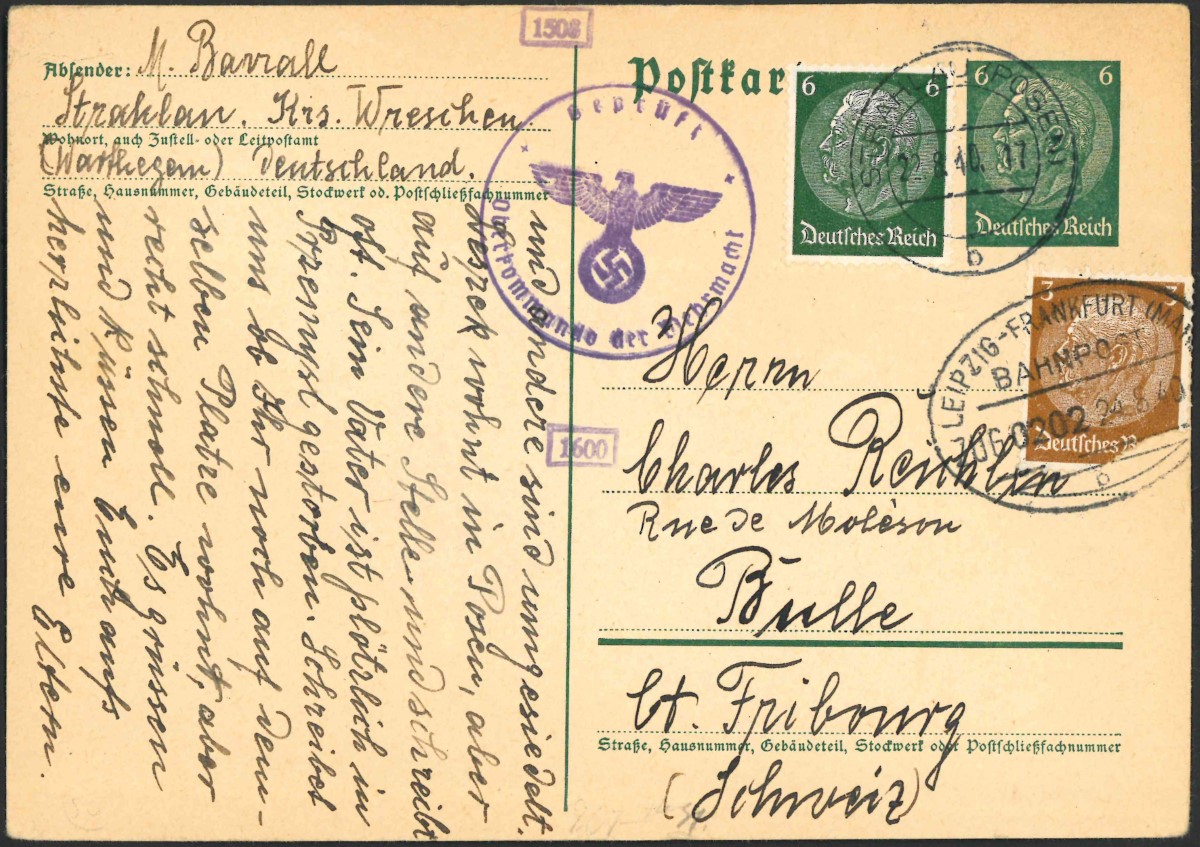 1508
Postkar
Absender: M. Barrall
Straklau. Krs. Wreschen
Wohnort, auch Zustell- oder Leitpostamt
(Warthegem) Deutschland.
Straße, Hausnummer, Gebäudeteil, Stockwerk od. Postschließfachnummer
Geprüft
Oberkommando der Wehrmacht
6 6
Deutsches Reich
6 6
Deutsches Reich
22.8.40. 17
b
3 3
Deutsches R
LEIPZIG-FRANKFURT (MAIN
BAHNPOST
0202 24.8.40
1600
Herrn
Charles Reuhlin
Rue de Moléson
Bulle
Ct. Fribourg
Straße, Hausnummer, Gebäudeteil, Stockwerk oder Postschließfachnummer
(Schweiz)
und andere sind umgesiedelt.
wohnt in Posen, aber
auf andere Stelle und schreibt
oft. Sein Vater ist plötzlich in
Przemysl gestorben. Schreibet
uns ob Ihr noch auf dem-
selben Platze wohnt, aber
recht schnell. Es grüssen
und küssen Euch aufs
herzlichste eure Eltern.